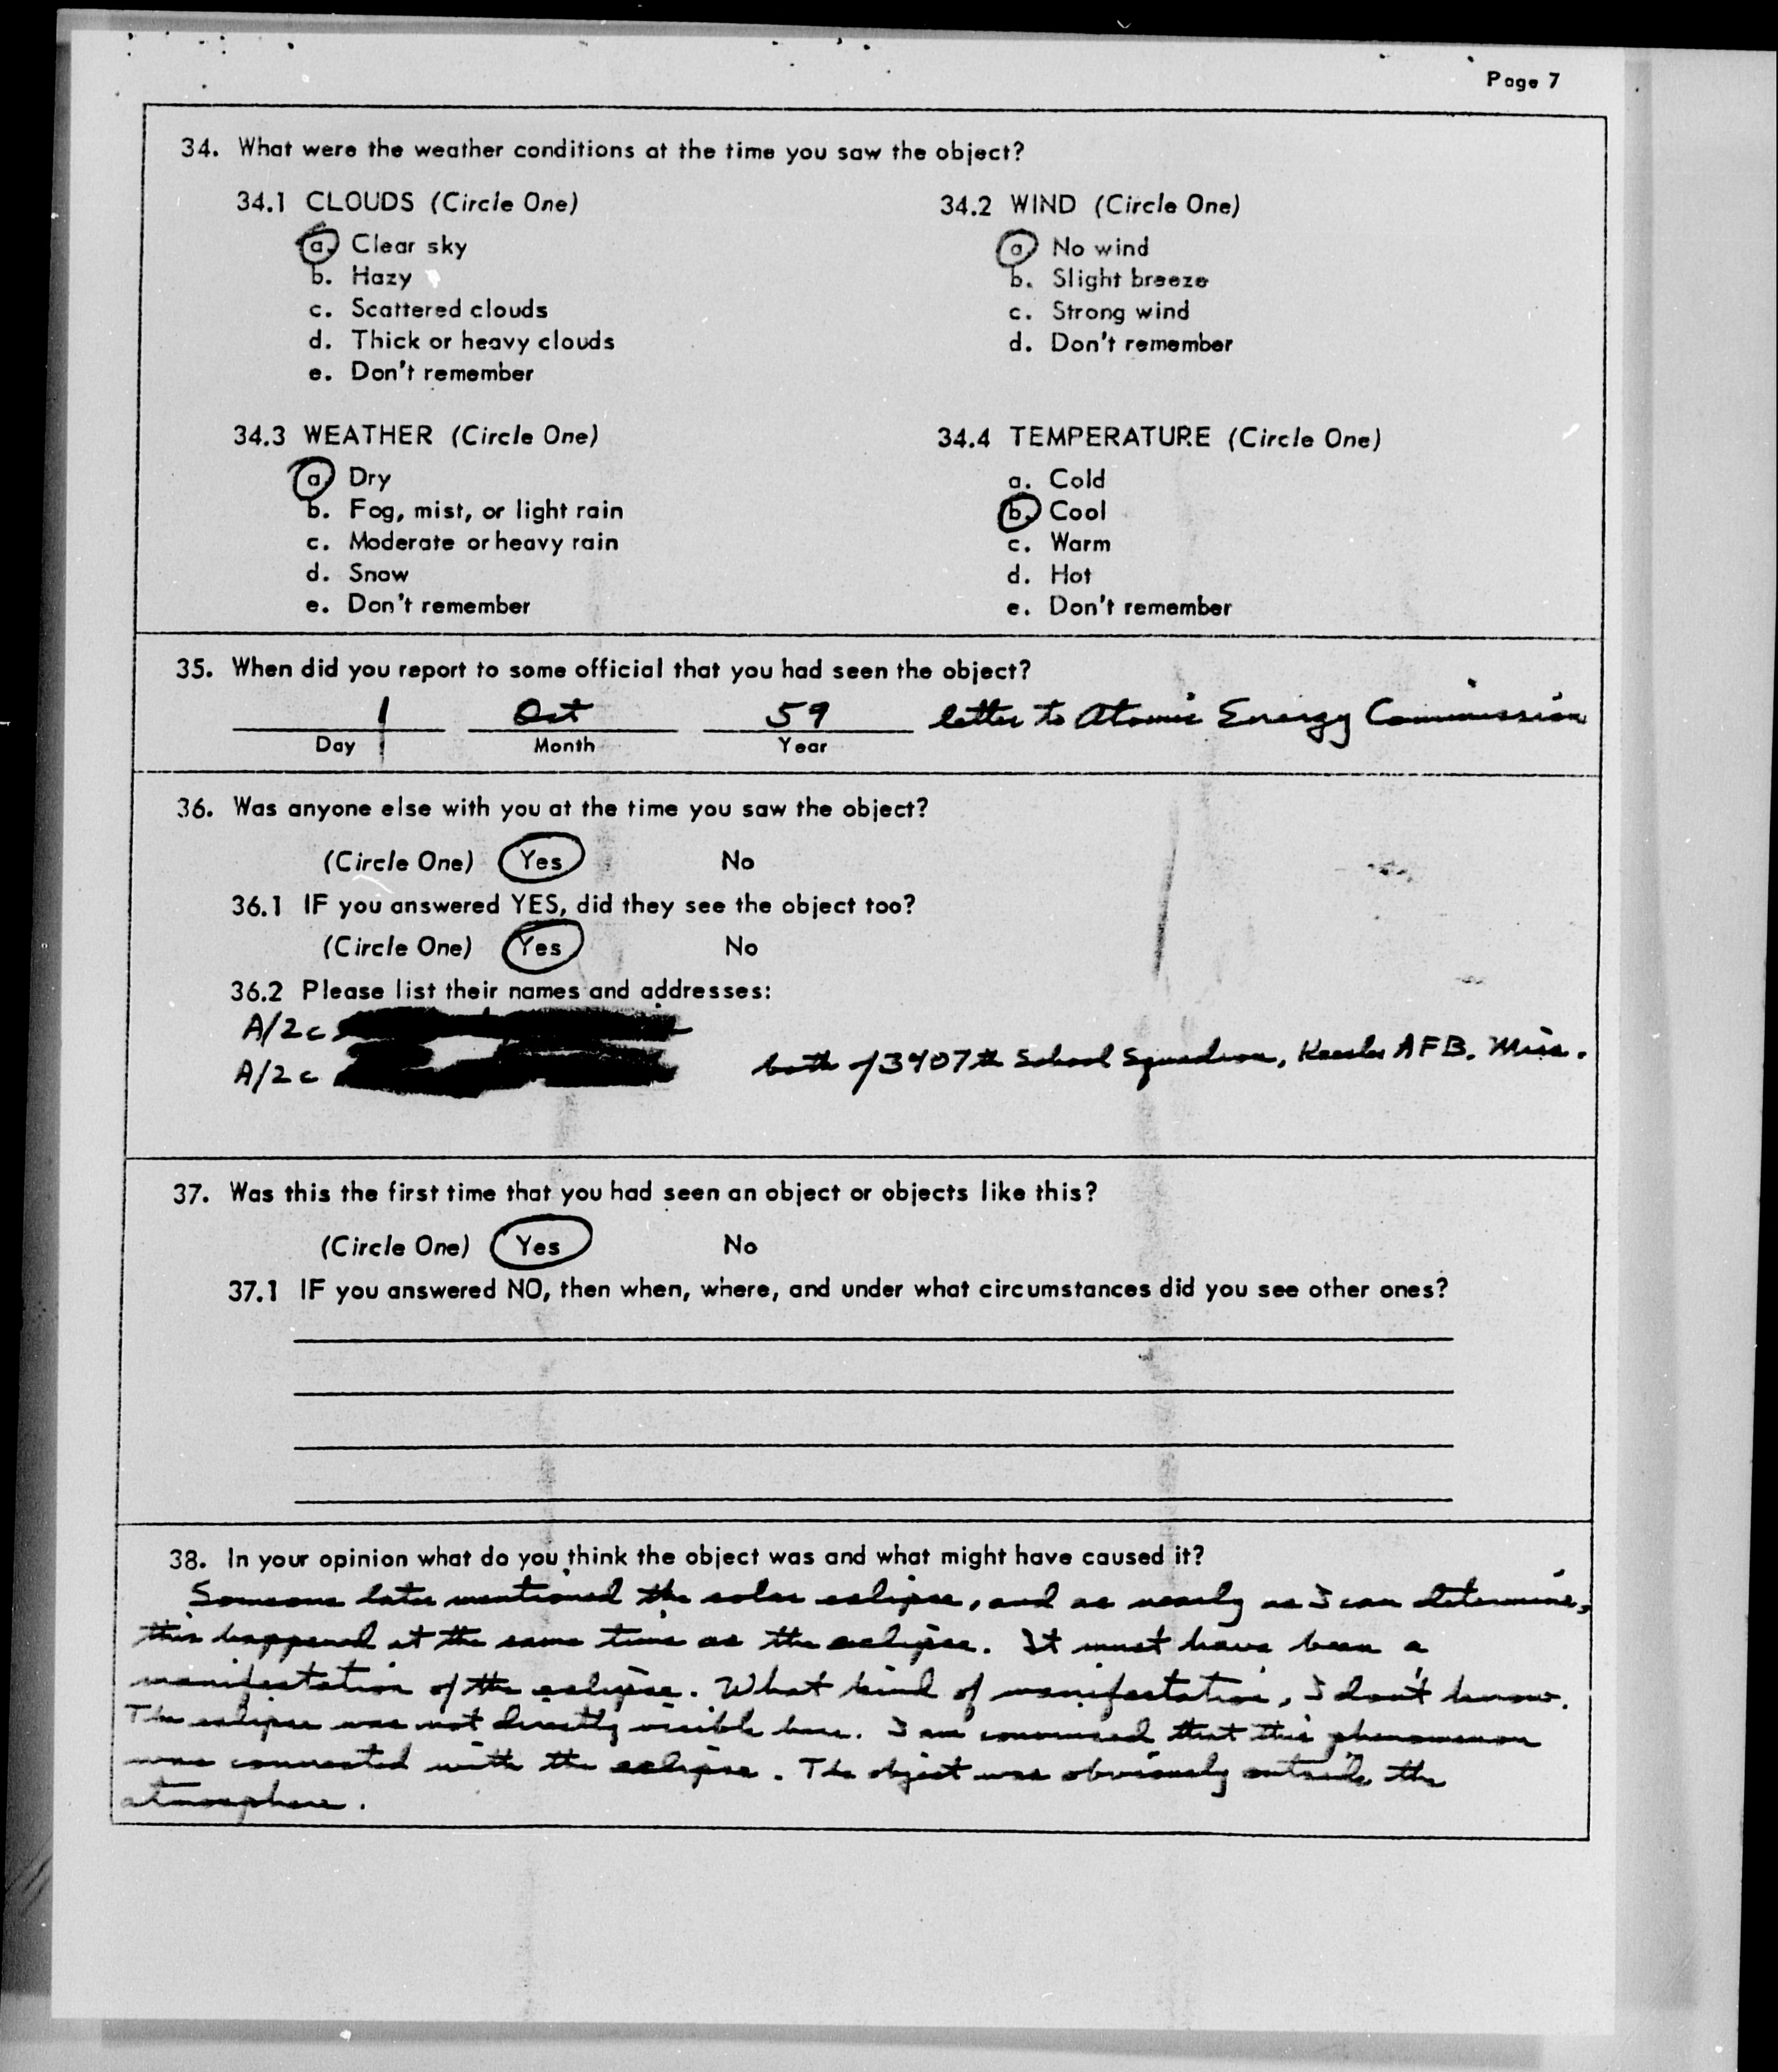 Page 7
34. What were the weather conditions at the time you saw the object?
34.1 CLOUDS (Circle One)
a. Clear sky
b. Hazy
c. Scattered clouds
d. Thick or heavy clouds
e. Don't remember
34.2 WIND (Circle One)
a. No wind
b. Slight breeze
c. Strong wind
d. Don't remember
34.3 WEATHER (Circle One)
a. Dry
b. Fog, mist, or light rain
c. Moderate or heavy rain
d. Snow
e. Don't remember
34.4 TEMPERATURE (Circle One)
a. Cold
b. Cool
c. Warm
d. Hot
e. Don't remember
35. When did you report to some official that you had seen the object?
1 Oct 59 letter to Atomic Energy Commission
Day Month Year
36. Was anyone else with you at the time you saw the object?
(Circle One) Yes No
36.1 IF you answered YES, did they see the object too?
(Circle One) Yes No
36.2 Please list their names and addresses:
A/2c
A/2c
both of 3407th School Squadron, Keesler AFB, Miss.
37. Was this the first time that you had seen an object or objects like this?
(Circle One) Yes No
37.1 IF you answered NO, then when, where, and under what circumstances did you see other ones?
38. In your opinion what do you think the object was and what might have caused it?
Someone later mentioned the solar eclipse, and as nearly as I can determine,
this happened at the same time as the eclipse. It must have been a
manifestation of the eclipse. What kind of manifestation, I don't know.
The eclipse was not directly visible here. I am convinced that this phenomenon
was connected with the eclipse. The object was obviously outside the
atmosphere.